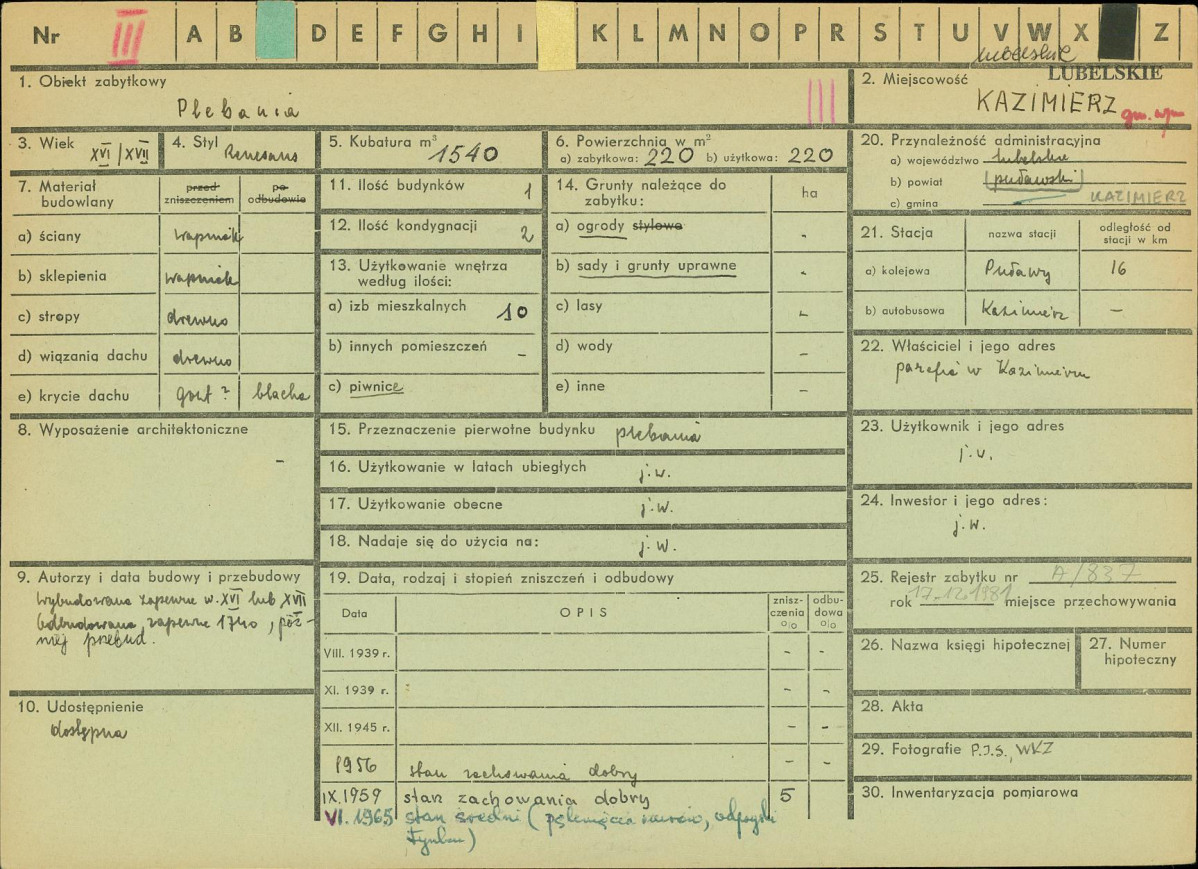 Nr III A B D E F G H I K L M N O P R S T U V W X Z
lubelskie
LUBELSKIE
1. Obiekt zabytkowy
Plebania
III
2. Miejscowość
KAZIMIERZ
3. Wiek XVI/XVII
4. Styl Renesans
5. Kubatura m³ 1540
6. Powierzchnia w m²
a) zabytkowa: 220 b) użytkowa: 220
7. Materiał budowlany
przed zniszczeniem
po odbudowie
a) ściany wapniak
b) sklepienia wapniak
c) stropy drewno
d) wiązania dachu drewno
e) krycie dachu gont ? blacha
8. Wyposażenie architektoniczne
-
9. Autorzy i data budowy i przebudowy
Wybudowana zapewne w. XVI lub XVII
Odbudowana, zapewne 1740, póź-
niej przebud.
10. Udostępnienie
dostępna
11. Ilość budynków 1
12. Ilość kondygnacji 2
13. Użytkowanie wnętrza
według ilości:
a) izb mieszkalnych 10
b) innych pomieszczeń -
c) piwnice
14. Grunty należące do
zabytku: ha
a) ogrody stylowe -
b) sady i grunty uprawne -
c) lasy -
d) wody -
e) inne -
15. Przeznaczenie pierwotne budynku plebania
16. Użytkowanie w latach ubiegłych j.w.
17. Użytkowanie obecne j.w.
18. Nadaje się do użycia na: j.w.
19. Data, rodzaj i stopień zniszczeń i odbudowy
Data OPIS znisz-
czenia
o/o odbu-
dowa
o/o
VIII. 1939 r. - -
XI. 1939 r. - -
XII. 1945 r. - -
1956 stan zachowania dobry - -
IX.1959 stan zachowania dobry 5
VI. 1965 stan średni (pęknięcia murów, odpryski
tynku)
20. Przynależność administracyjna
a) województwo lubelskie
b) powiat (puławski)
c) gmina KAZIMIERZ
21. Stacja nazwa stacji odległość od
stacji w km
a) kolejowa Puławy 16
b) autobusowa Kazimierz -
22. Właściciel i jego adres
parafia w Kazimierzu
23. Użytkownik i jego adres
j.w.
24. Inwestor i jego adres:
j.w.
25. Rejestr zabytku nr A/837
rok 17.12.1981 miejsce przechowywania
26. Nazwa księgi hipotecznej
27. Numer
hipoteczny
28. Akta
29. Fotografie P.I.S., WKZ
30. Inwentaryzacja pomiarowa